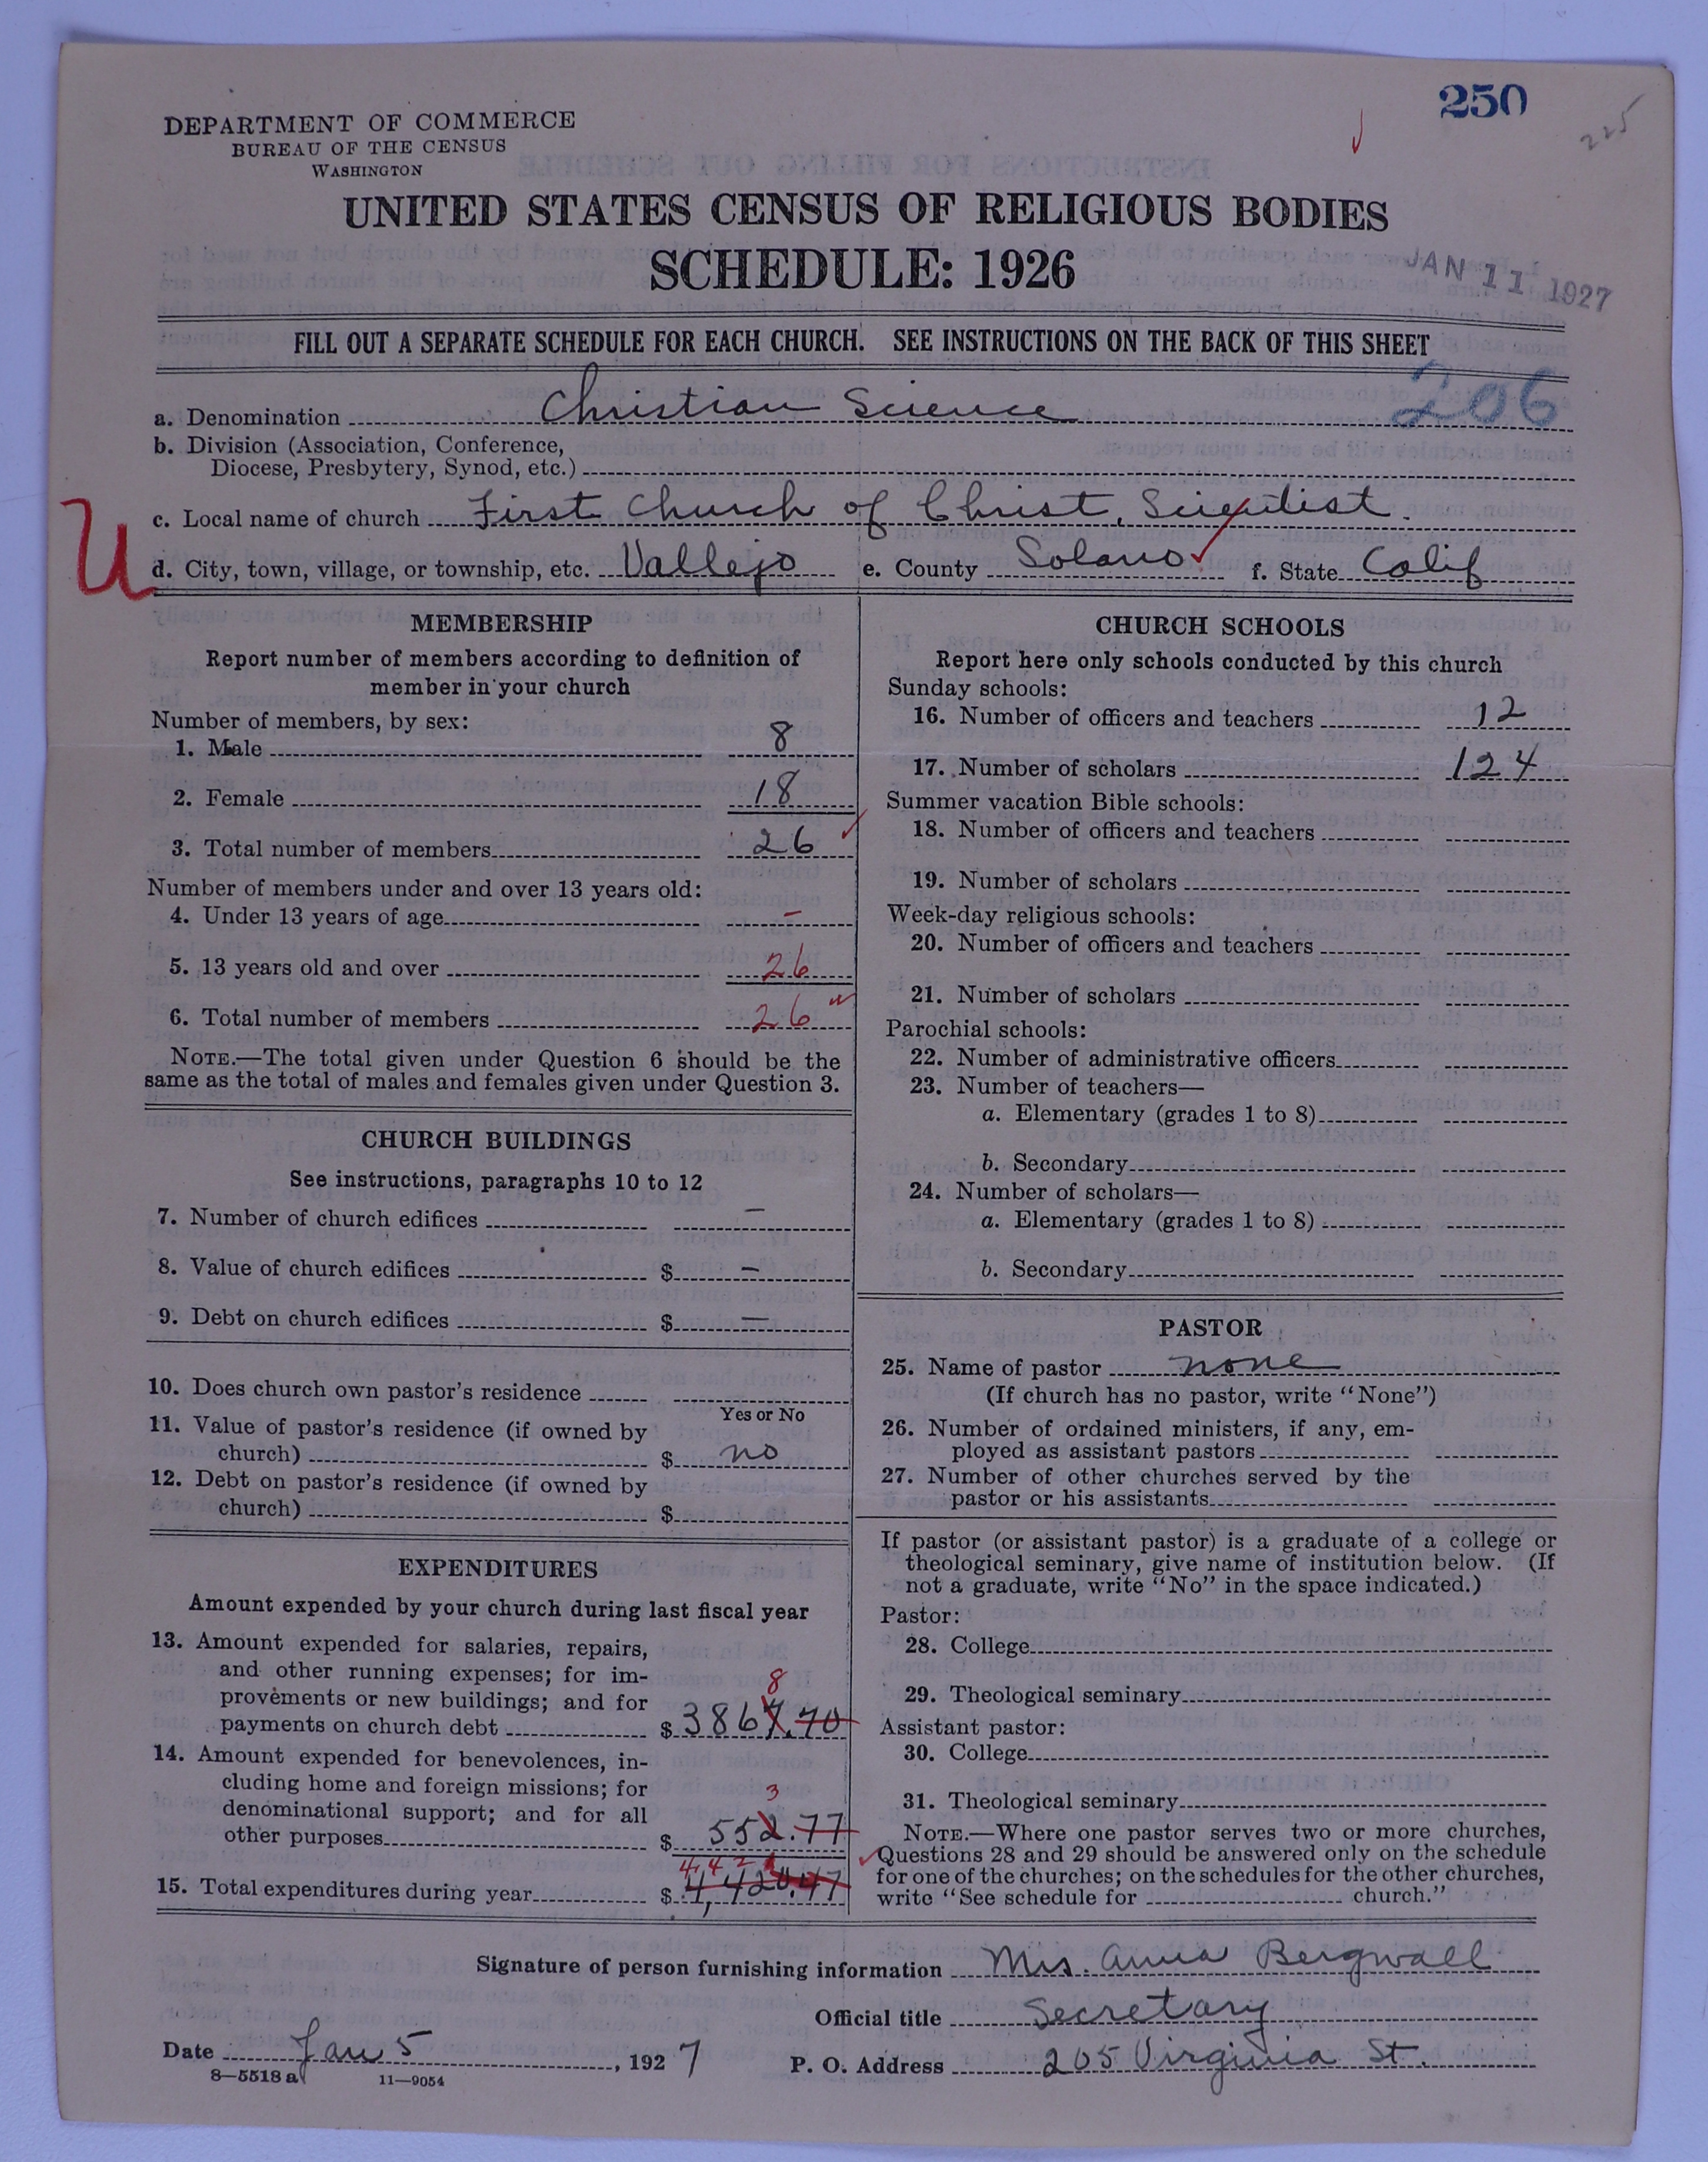 250
225
DEPARTMENT OF COMMERCE
BUREAU OF THE CENSUS
WASHINGTON
UNITED STATES CENSUS OF RELIGIOUS BODIES
SCHEDULE: 1926
JAN 11 1927
FILL OUT A SEPARATE SCHEDULE FOR EACH CHURCH. SEE INSTRUCTIONS ON THE BACK OF THIS SHEET
206
a. Denomination Christian Science
b. Division (Association, Conference,
Diocese, Presbytery, Synod, etc.)
U
c. Local name of church First Church of Christ, Scientist.
d. City, town, village, or township, etc. Vallejo e. County Solano f. State Calif
MEMBERSHIP
Report number of members according to definition of
member in your church
Number of members, by sex:
1. Male 8
2. Female 18
3. Total number of members 26
Number of members under and over 13 years old:
4. Under 13 years of age –
5. 13 years old and over 26
6. Total number of members 26
NOTE.—The total given under Question 6 should be the
same as the total of males and females given under Question 3.
CHURCH BUILDINGS
See instructions, paragraphs 10 to 12
7. Number of church edifices –
8. Value of church edifices $ –
9. Debt on church edifices $ –
10. Does church own pastor's residence
Yes or No
11. Value of pastor's residence (if owned by
church) $ no
12. Debt on pastor's residence (if owned by
church) $
EXPENDITURES
Amount expended by your church during last fiscal year
13. Amount expended for salaries, repairs,
and other running expenses; for im-
8
provements or new buildings; and for
payments on church debt $ 3867.70
14. Amount expended for benevolences, in-
cluding home and foreign missions; for
3
denominational support; and for all
other purposes $ 552.77
4,421
15. Total expenditures during year $ 4,420.47
CHURCH SCHOOLS
Report here only schools conducted by this church
Sunday schools:
16. Number of officers and teachers 12
17. Number of scholars 124
Summer vacation Bible schools:
18. Number of officers and teachers
19. Number of scholars
Week-day religious schools:
20. Number of officers and teachers
21. Number of scholars
Parochial schools:
22. Number of administrative officers
23. Number of teachers—
a. Elementary (grades 1 to 8)
b. Secondary
24. Number of scholars—
a. Elementary (grades 1 to 8)
b. Secondary
PASTOR
25. Name of pastor none
(If church has no pastor, write "None")
26. Number of ordained ministers, if any, em-
ployed as assistant pastors
27. Number of other churches served by the
pastor or his assistants
If pastor (or assistant pastor) is a graduate of a college or
theological seminary, give name of institution below. (If
not a graduate, write "No" in the space indicated.)
Pastor:
28. College
29. Theological seminary
Assistant pastor:
30. College
31. Theological seminary
NOTE.—Where one pastor serves two or more churches,
Questions 28 and 29 should be answered only on the schedule
for one of the churches; on the schedules for the other churches,
write "See schedule for church."
Signature of person furnishing information Mrs. Anna Bergwall
Official title Secretary
Date Jan 5, 1927 P. O. Address 205 Virginia St.
8—5518 a 11—9054